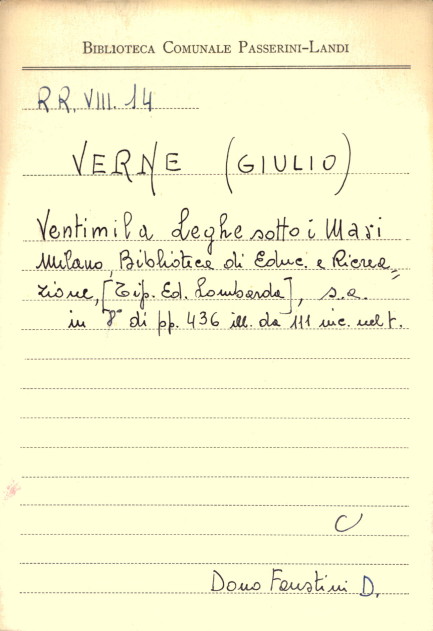 BIBLIOTECA COMUNALE PASSERINI-LANDI
RR. VIII. 14
VERNE (GIULIO)
Ventimila Leghe sotto i Mari
Milano, Biblioteca di Educ. e Ricrea=
zione, [Tip. Ed. Lombarda], s.a.
in 8° di pp. 436 ill. da 111 inc. nel t.
C
Dono Faustini D.